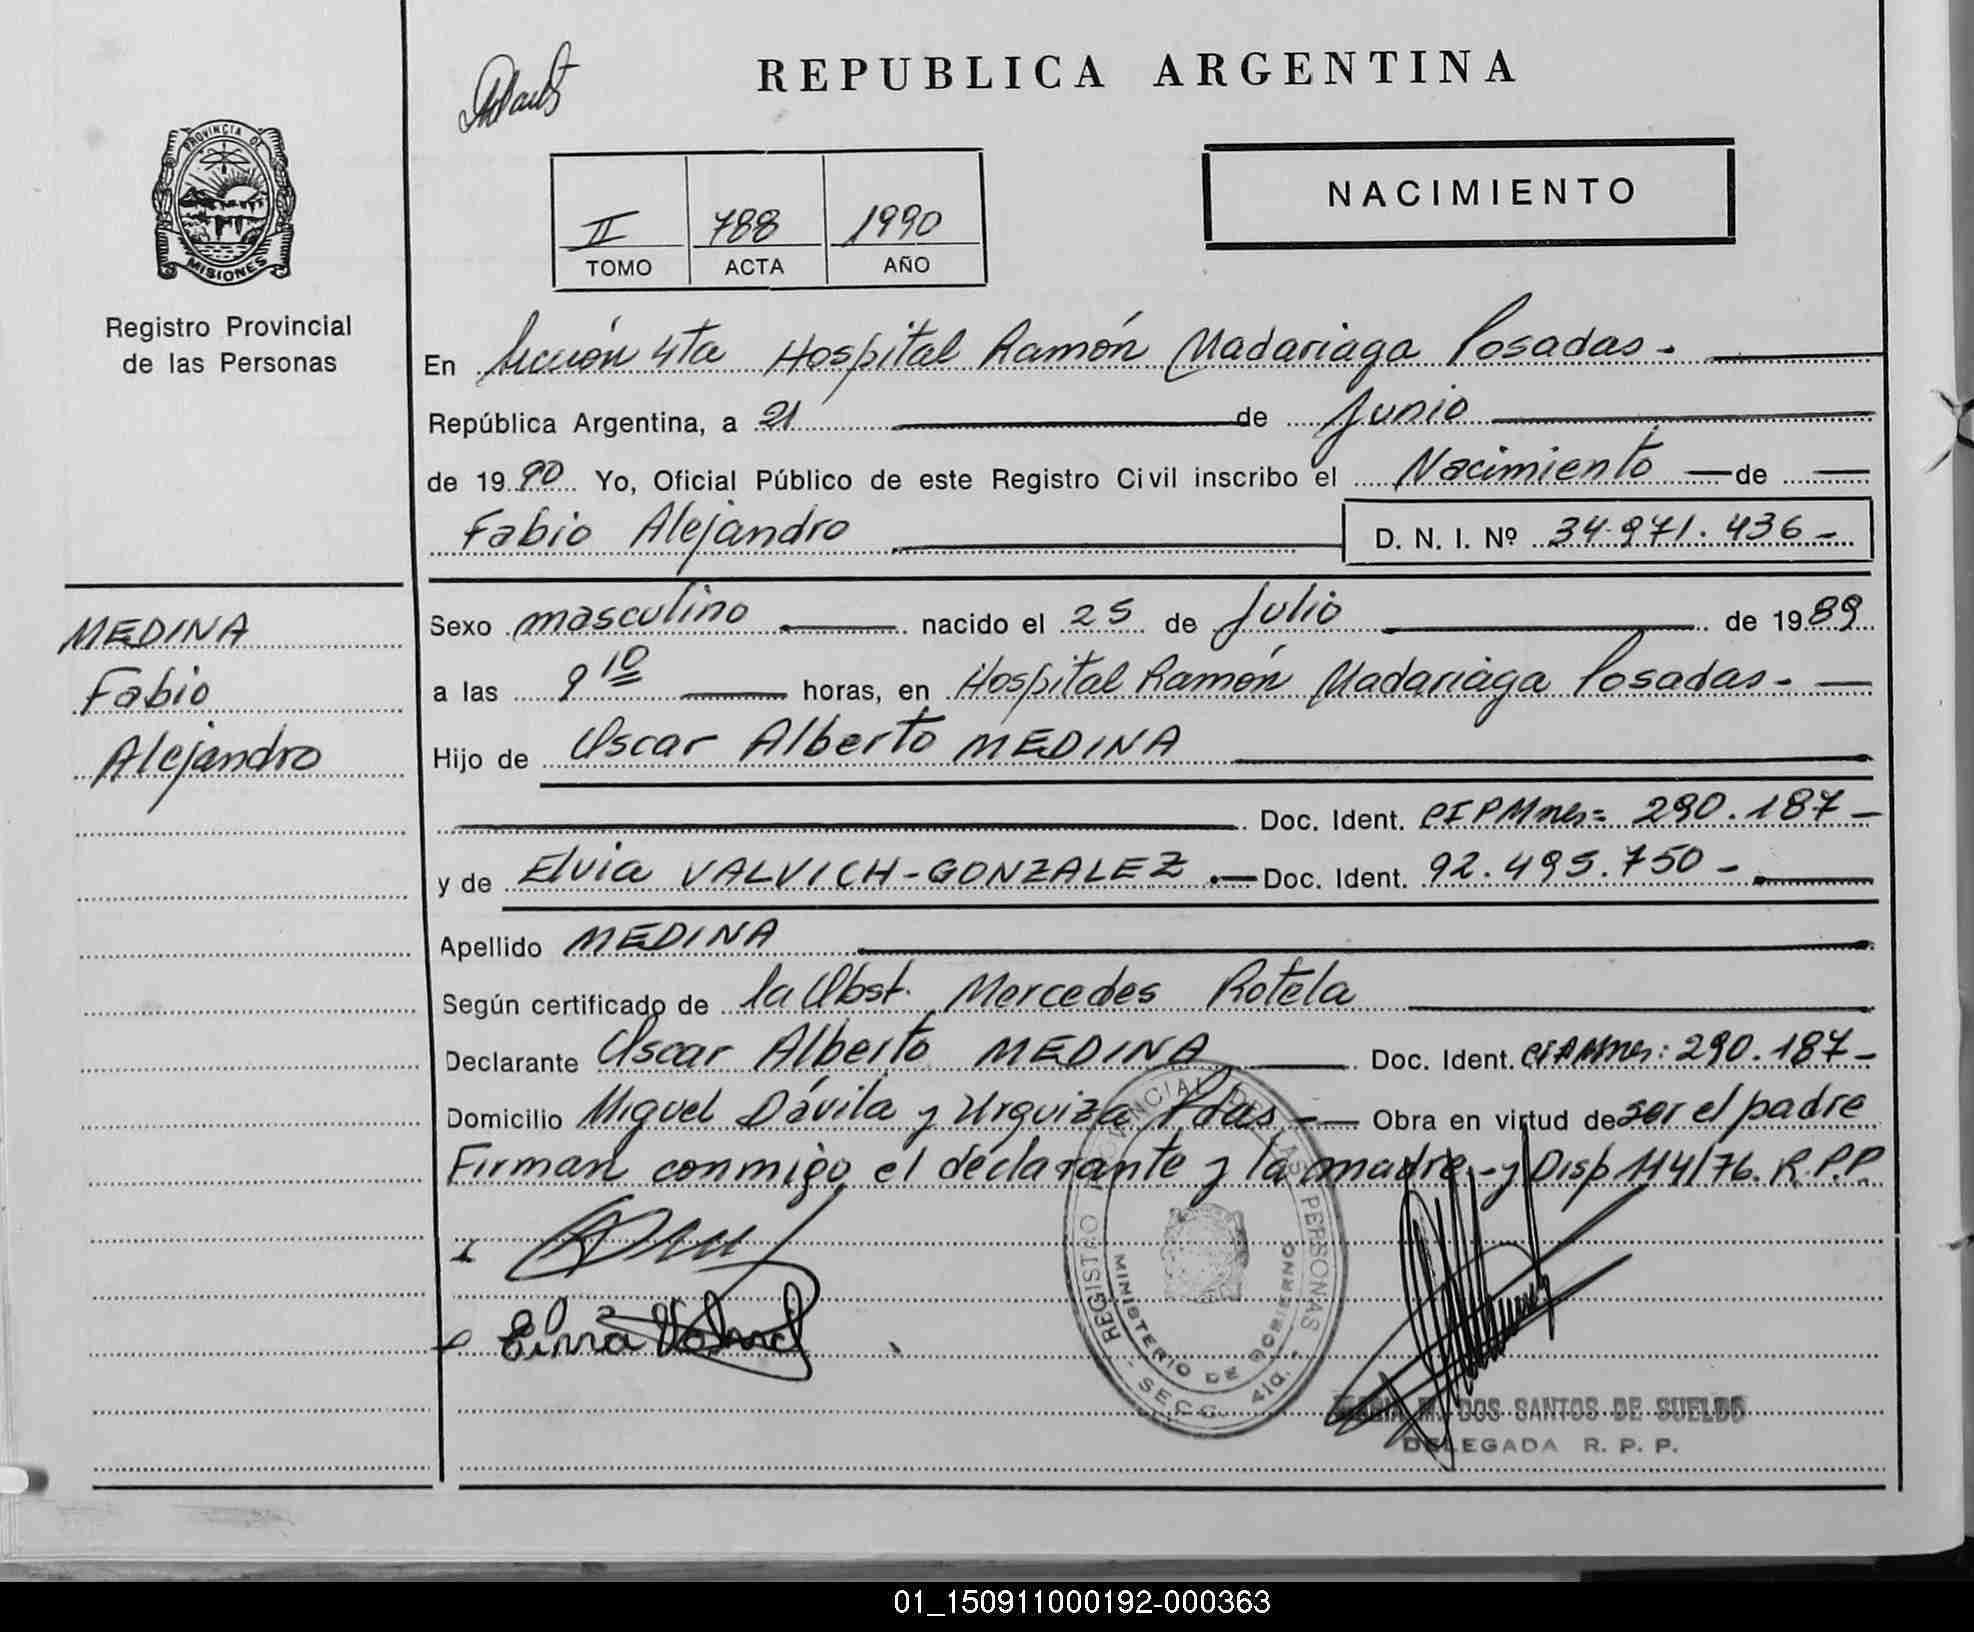 REPUBLICA ARGENTINA
PROVINCIA DE
MISIONES
Registro Provincial
de las Personas
NACIMIENTO
II 788 1990
TOMO ACTA AÑO
En Sección 4ta Hospital Ramón Madariaga Posadas.
República Argentina, a 21 de Junio
de 1990 Yo, Oficial Público de este Registro Civil inscribo el Nacimiento de
Fabio Alejandro D. N. I. Nº 34.971.436
MEDINA
Fabio
Alejandro
Sexo masculino nacido el 25 de Julio de 1989
a las 9 10 horas, en Hospital Ramón Madariaga Posadas.
Hijo de Oscar Alberto MEDINA
Doc. Ident. CIPMnes= 290.187
y de Elvia VALVICH-GONZALEZ. Doc. Ident. 92.495.750
Apellido MEDINA
Según certificado de la Obst. Mercedes Rotela
Declarante Oscar Alberto MEDINA Doc. Ident. 290.187
Domicilio Miguel Dávila y Urquiza Pdas Obra en virtud de ser el padre
Firman conmigo el declarante y la madre-y Disp 114/76. R.P.P.
REGISTRO PROVINCIAL DE LAS PERSONAS
MINISTERIO DE GOBIERNO
SECC. 4ta.
DOS SANTOS DE SUELDO
DELEGADA R. P. P.
01_150911000192-000363